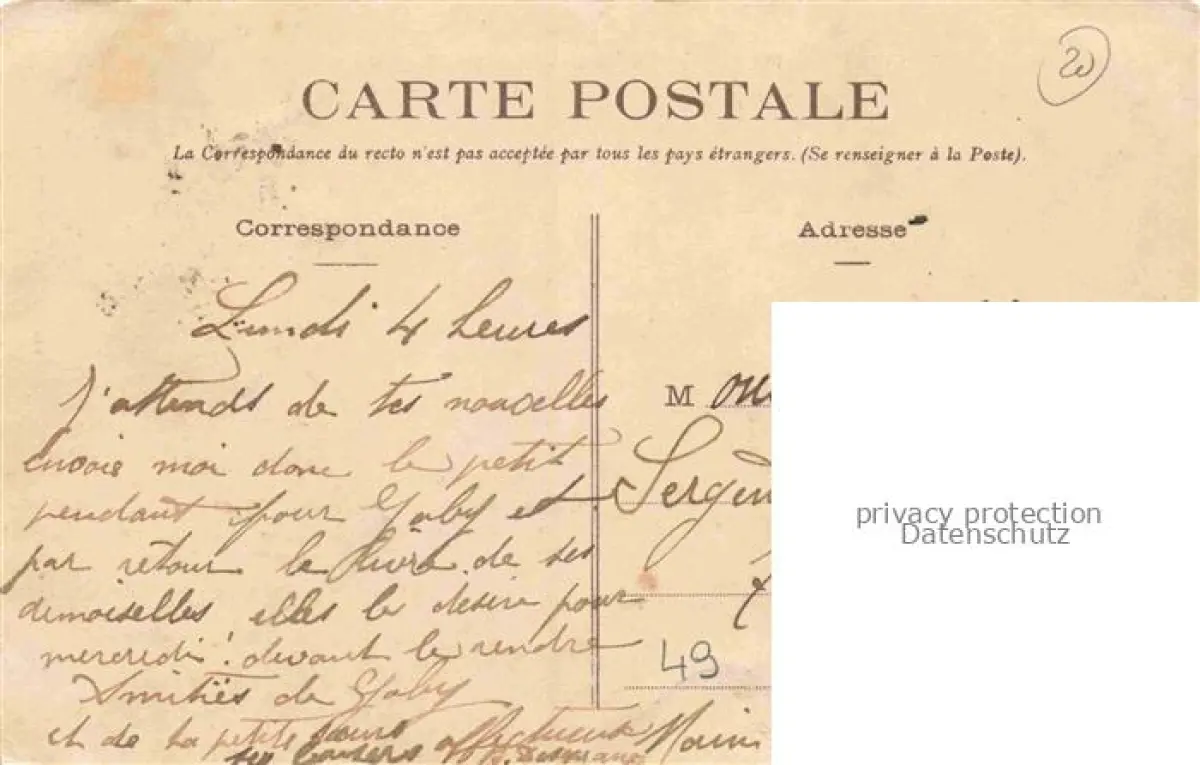 20
CARTE POSTALE
La Correspondance du recto n'est pas acceptée par tous les pays étrangers. (Se renseigner à la Poste).
Correspondance
Lundi 4 heures
J'attends de tes nouvelles
envoie moi donc le petit
pendant pour Gaby et
par retour le livre de ses
demoiselles elles le désire pour
mercredi! devant le rendre
Amitiés de Gaby
et de ta petite soeur
affectueux
baisers
Adresse
M
49
privacy protection
Datenschutz